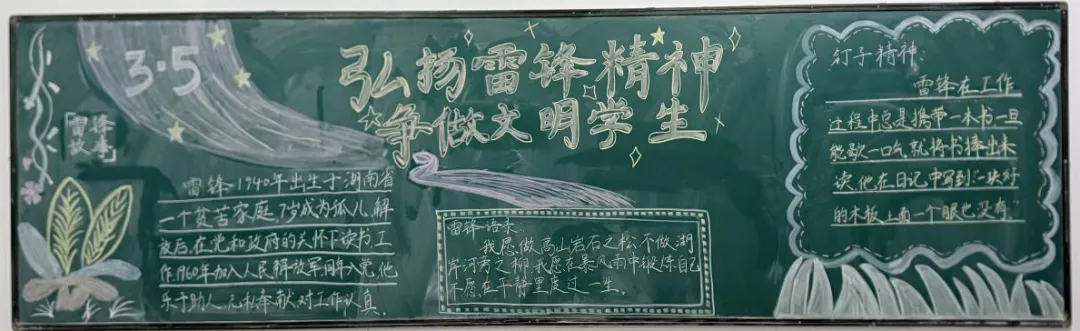 3·5
弘扬雷锋精神
争做文明学生
雷锋
故事
雷锋1940年出生于湖南省
一个贫苦家庭,7岁成为孤儿,解
放后,在党和政府的关怀下读书工
作,1960年加入人民解放军同年入党,他
乐于助人,无私奉献对工作认真.
雷锋语录:
我愿做高山岩石之松,不做湖
岸河旁之柳.我愿在暴风雨中锻炼自己
不愿在平静里度过一生.
钉子精神:
雷锋在工作
过程中总是携带一本书一旦
能歇一口气,就将书捧出来
读,他在日记中写到:"块好
的木板,上面一个眼也没有."